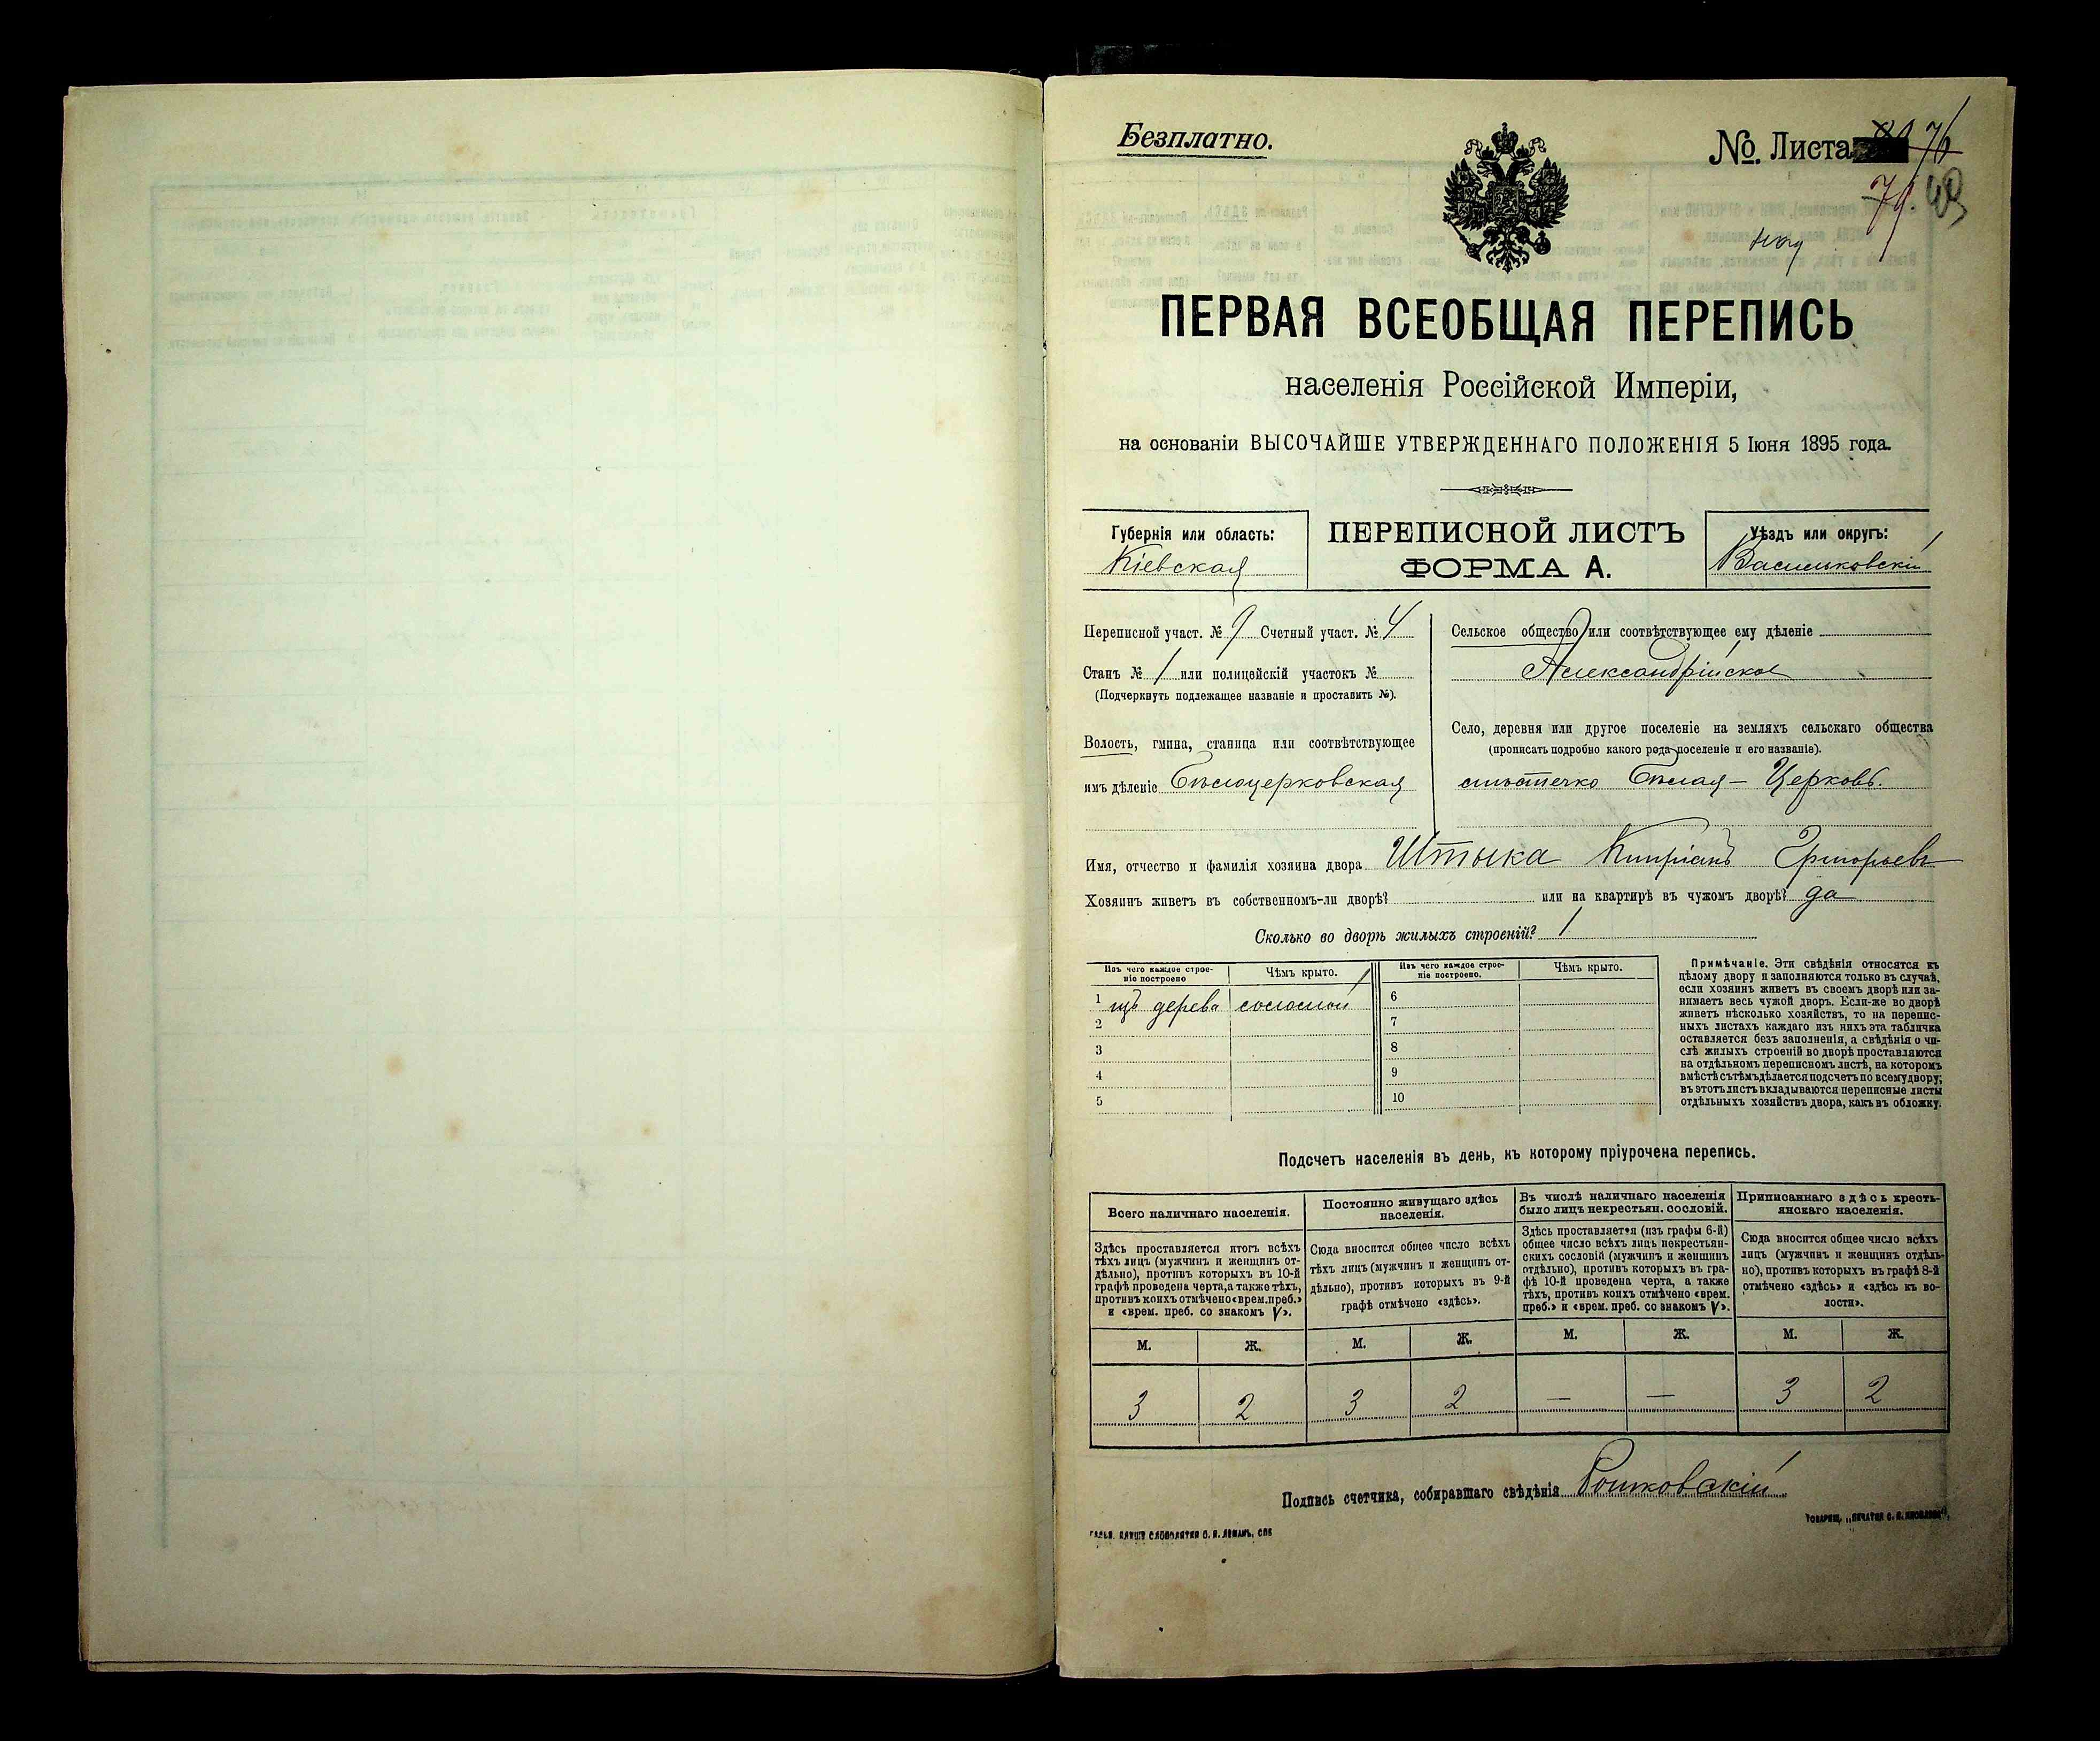 Безплатно.
№. Листа 76
79.
ПЕРВАЯ ВСЕОБЩАЯ ПЕРЕПИСЬ
населенія Россійской Имперіи,
на основаніи ВЫСОЧАЙШЕ УТВЕРЖДЕННАГО ПОЛОЖЕНІЯ 5 Іюня 1895 года.
Губернія или область:
Кіевская
ПЕРЕПИСНОЙ ЛИСТЪ
ФОРМА А.
Уѣздъ или округъ:
Васильковскій
Переписной участ. № 9 Счетный участ. № 4
Станъ № 1 или полицейскій участокъ №
(Подчеркнуть подлежащее названіе и проставить №).
Волость, гмина, станица или соотвѣтствующее
имъ дѣленіе Бѣлоцерковская
Сельское общество или соотвѣтствующее ему дѣленіе
Александрійское
Село, деревня или другое поселеніе на земляхъ сельскаго общества
(прописать подробно какого рода поселеніе и его названіе).
мѣстечко Бѣлая-Церковь.
Имя, отчество и фамилія хозяина двора Штыка Кипріанъ Григорьевъ
Хозяинъ живетъ въ собственномъ-ли дворѣ? или на квартирѣ въ чужомъ дворѣ? да
Сколько во дворѣ жилыхъ строеній? 1
Изъ чего каждое строе-
ніе построено
Чѣмъ крыто.
1 изъ дерева соломой
2
3
4
5
Изъ чего каждое строе-
ніе построено.
Чѣмъ крыто.
6
7
8
9
10
Примѣчаніе. Эти свѣдѣнія относятся къ
цѣлому двору и заполняются только въ случаѣ,
если хозяинъ живетъ въ своемъ дворѣ или за-
нимаетъ весь чужой дворъ. Если-же во дворѣ
живетъ нѣсколько хозяйствъ, то на перепис-
ныхъ листахъ каждаго изъ нихъ эта табличка
оставляется безъ заполненія, а свѣдѣнія о чи-
слѣ жилыхъ строеній во дворѣ проставляются
на отдѣльномъ переписномъ листѣ, на которомъ
вмѣстѣ съ тѣмъ дѣлается подсчетъ по всему двору;
въ этотъ листъ вкладываются переписные листы
отдѣльныхъ хозяйствъ двора, какъ въ обложку.
Подсчетъ населенія въ день, къ которому пріурочена перепись.
Всего наличнаго населенія.
Здѣсь проставляется итогъ всѣхъ
тѣхъ лицъ (мужчинъ и женщинъ от-
дѣльно), противъ которыхъ въ 10-й
графѣ проведена черта, а также тѣхъ,
противъ коихъ отмѣчено «врем. преб.»
и «врем. преб. со знакомъ V».
М. Ж.
3 2
Постоянно живущаго здѣсь
населенія.
Сюда вносится общее число всѣхъ
тѣхъ лицъ (мужчинъ и женщинъ от-
дѣльно), противъ которыхъ въ 9-й
графѣ отмѣчено «здѣсь».
М. Ж.
3 2
Въ числѣ наличнаго населенія
было лицъ некрестьян. сословій.
Здѣсь проставляется (изъ графы 6-й)
общее число всѣхъ лицъ некрестьян-
скихъ сословій (мужчинъ и женщинъ
отдѣльно), противъ которыхъ въ гра-
фѣ 10-й проведена черта, а также
тѣхъ, противъ коихъ отмѣчено «врем.
преб.» и «врем. преб. со знакомъ V».
М. Ж.
— —
Приписаннаго здѣсь кресть-
янскаго населенія.
Сюда вносится общее число всѣхъ
лицъ (мужчинъ и женщинъ отдѣль-
но), противъ которыхъ въ графѣ 8-й
отмѣчено «здѣсь» и «здѣсь къ во-
лости».
М. Ж.
3 2
Подпись счетчика, собиравшаго свѣдѣнія